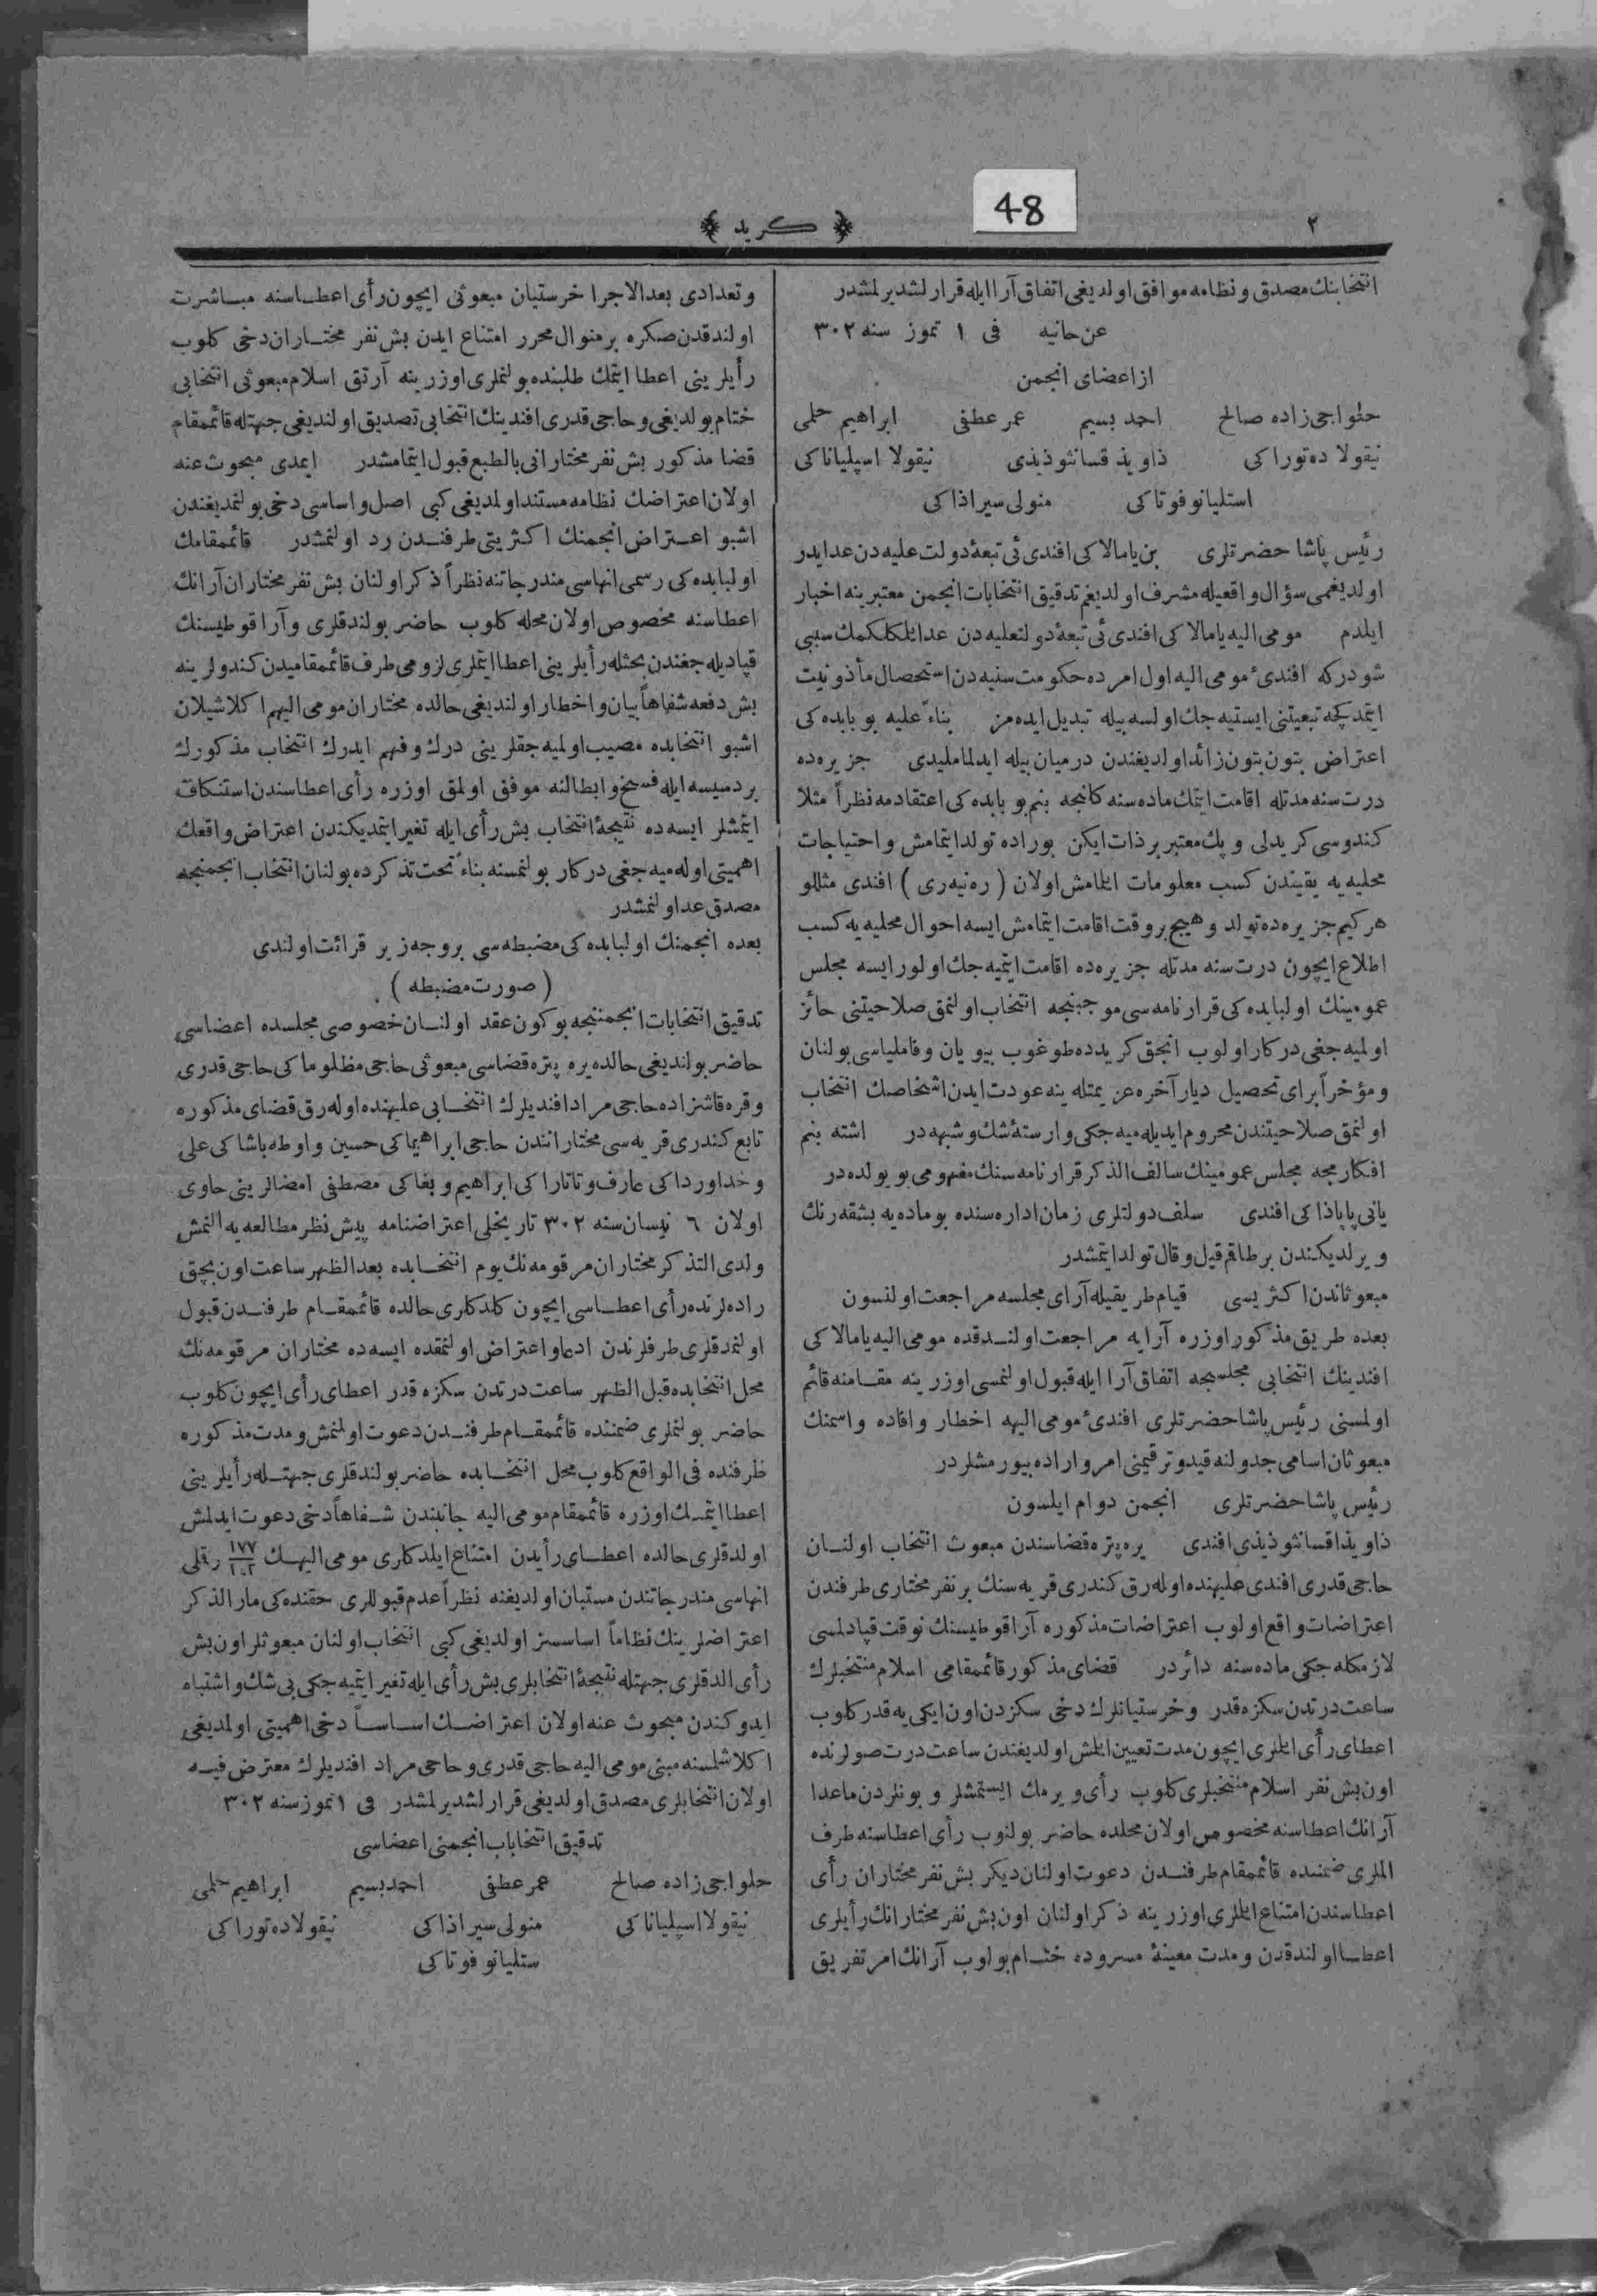 ٢
48
﴿ كريد ﴾
انتخابنك مصدق و نظامه موافق اولديغى اتفاق آرا ايله قرارلشديرلمشدر
عن حانيه فى ١ تموز سنه ٣٠٢
از اعضاى انجمن
حلواجى زاده صالح احمد بسيم عمر عطفى ابراهيم حلمى
نيقولا ده توراكى ذاويذ قسانثوذيذى نيقولا اسپلياناكى
استليانو فوتاكى منولى سيراذاكى
رئيس پاشا حضرتلرى بن يامالاكى افندى ئى تبعۀ دولت عليه دن عد ايدر
اولديغمى سؤال واقعيله مشرف اولديغم تدقيق انتخابات انجمن معتبرينه اخبار
ايلدم مومى اليه يامالاكى افندى ئى تبعۀ دولتعليه دن عد ايلكلكمك سببى
شودركه افندىٔ مومى اليه اول امرده حكومت سنيه دن استحصال مأذونيت
ايتمدكچه تبعيتنى ايستيه جك اولسه بيله تبديل ايده مز بناءً عليه بو بابده كى
اعتراض بتون بتون زائد اولديغندن درميان بيله ايدلماملیدى جزيره ده
درت سنه مدتله اقامت ايتمك ماده سنه كلنجه بنم بو بابده كى اعتقادمه نظراً مثلا
كندوسى كريدلى و پك معتبر بر ذات ايكن بوراده تولد ايتمامش و احتياجات
محليه يه يقيندن كسب معلومات ايلمامش اولان ( ره نيه رى ) افندى مثللو
هر كيم جزيره ده تولد و هيچ بر وقت اقامت ايتمامش ايسه احوال محليه يه كسب
اطلاع ايچون درت سنه مدتله جزيره ده اقامت ايتميه جك اولور ايسه مجلس
عمومينك اولبابده كى قرارنامه سى موجبنجه انتخاب اولنمق صلاحيتنى حائز
اوليه جغى دركار اولوب انجق كريدده طوغوب بيويان و فاملياسى بولنان
و مؤخراً براى تحصيل ديار آخره عزيمتله ينه عودت ايدن اشخاصك انتخاب
اولنمق صلاحيتندن محروم ايديله ميه جكى وارستۀ شك و شبهه در اشته بنم
افكارمجه مجلس عمومينك سالف الذكر قرارنامه سنك مفهومى بو يولده در
يانى پاپاذاكى افندى سلف دولتلرى زمان اداره سنده بو ماده يه بشقه رنك
ويرلديكندن بر طاقم قيل و قال تولد ايتمشدر
مبعوثاندن اكثريسى قيام طريقيله آراى مجلسه مراجعت اولنسون
بعده طريق مذكور اوزره آرايه مراجعت اولنـدقده مومى اليه يامالاكى
افندينك انتخابى مجلسجه اتفاق آرا ايله قبول اولنمسى اوزرينه مقـامنه قائم
اولمسنى رئيس پاشا حضرتلرى افندىٔ مومى اليهه اخطار و افاده و اسمنك
مبعوثان اسامى جدولنه قيد و ترقيمنى امر و اراده بيورمشلردر
رئيس پاشا حضرتلرى انجمن دوام ايلسون
ذاويذ قسانثوذيذى افندى يره پتره قضاسندن مبعوث انتخاب اولنـان
حاجى قدرى افندى عليهنده اوله رق كندرى قريه سنك بر نفر مختارى طرفندن
اعتراضات واقع اولوب اعتراضات مذكوره آرا قوطيسنك نوقت قپادلمسى
لازمكله جكى ماده سنه دائردر قضاى مذكور قائممقامى اسلام منتخبلرك
ساعت درتدن سكزه قدر و خرستيانلرك دخى سكزدن اون ايكى يه قدر كلوب
اعطاى رأى ايلملرى ايچون مدت تعيين ايلمش اولديغندن ساعت درت صولرنده
اون بش نفر اسلام منتخبلرى كلوب رأى ويرمك ايستمشلر و بونلردن ماعدا
آرانك اعطاسنه مخصوص اولان محلده حاضر بولنوب رأى اعطاسنه طرف
الملرى ضمننده قائممقام طرفنـدن دعوت اولنان ديكر بش نفر مختاران رأى
اعطاسندن امتناع ايلملرى اوزرينه ذكر اولنان اون بش نفر مختارانك رأيلرى
اعطـا اولندقدن و مدت معينۀ مسروده ختـام بولوب آرانك امر تفريق
و تعدادى بعد الاجرا خرستيان مبعوثى ايچون رأى اعطـاسنه مبـاشرت
اولندقدن صكره بر منوال محرر امتناع ايدن بش نفر مختـاران دخى كلوب
رأيلرينى اعطا ايتمك طلبنده بولنملرى اوزرينه آرتق اسلام مبعوثى انتخابى
ختام بولديغى و حاجى قدرى افندينك انتخابى تصديق اولنديغى جهتله قائممقام
قضا مذكور بش نفر مختارانى بالطبع قبول ايتمامشدر ايمدى مبحوث عنه
اولان اعتراضك نظامه مستند اولمديغى كبى اصل و اساسى دخى بولنمديغندن
اشبو اعـتراض انجمنك اكثريتى طرفنـدن رد اولنمشدر قائممقامك
اولبابده كى رسمى انهاسى مندرجاتنه نظراً ذكر اولنان بش نفر مختاران آرانك
اعطاسنه مخصوص اولان محله كلوب حاضر بولندقلرى و آرا قوطيسنك
قپاديله جغندن بحثله رأيلرينى اعطا ايتملرى لزومى طرف قائممقاميدن كندولرينه
بش دفعه شفاهاً بيان و اخطار اولنديغى حالده مختاران مومى اليهم اكلاشيلان
اشبو انتخابده مصيب اوليه جقلرينى درك و فهم ايدرك انتخاب مذكورك
بر دسيسه ايله فسخ و ابطالنه موفق اولمق اوزره رأى اعطاسندن استنكاف
ايتمشلر ايسه ده نتيجۀ انتخاب بش رأى ايله تغير ايتمديكندن اعتراض واقعك
اهميتى اوله ميه جغى دركار بولنمسنه بناءً تحت تذكرده بولنان انتخاب انجمنجه
مصدق عد اولنمشدر
بعده انجمنك اولبابده كى مضبطه سى بروجه زير قرائت اولندى
( صورت مضبطه )
تدقيق انتخابات انجمننجه بو كون عقد اولنـان خصوصى مجلسده اعضاسى
حاضر بولنديغى حالده يره پتره قضاسى مبعوثى حاجى مظلوماكى حاجى قدرى
و قره قاش زاده حاجى مراد افنديلرك انتخـابى عليهنده اوله رق قضاى مذكوره
تابع كندرى قريه سى مختارانندن حاجى ابراهيماكى حسين و اوطه باشاكى على
و خداورداكى عارف و تاتاراكى ابراهيم و بغاكى مصطفى امضالرينى حاوى
اولان ٦ نيسان سنه ٣٠٢ تاريخلى اعتراضنامه پيش نظر مطالعه يه النمش
ولدى التذكر مختاران مرقومه نك يوم انتخـابده بعد الظهر ساعت اون بچق
راده لرنده رأى اعطـاسى ايچون كلدكلرى حالده قائممقـام طرفنـدن قبول
اولنمدقلرى طرفلرندن ادعا و اعتراض اولنمقده ايسه ده مختاران مرقومه نك
محل انتخابده قبل الظهر ساعت درتدن سكزه قدر اعطاى رأى ايچون كلوب
حاضر بولنملرى ضمننده قائممقـام طرفنـدن دعوت اولنمش و مدت مذكوره
ظرفنده فى الواقع كلوب محل انتخـابده حاضر بولندقلرى جهتـله رأيلرينى
اعطا ايتمـك اوزره قائممقام مومى اليه جانبندن شـفاهاً دخى دعوت ايدلمش
اولدقلرى حالده اعطـاى رأيدن امتناع ايلدكلرى مومى اليهـك ١٧٧/١٠٢ رقملى
انهاسى مندرجاتندن مستبان اولديغنه نظراً عدم قبوللرى حقنده كى مار الذكر
اعتراضلرينك نظاماً اساسسز اولديغى كبى انتخاب اولنان مبعوثلر اون بش
رأى الدقلرى جهتله نتيجۀ انتخابلرى بش رأى ايله تغير ايتميه جكى بى شك و اشتباه
ايدوكندن مبحوث عنه اولان اعتراضـك اسـاسـاً دخى اهميتى اولمديغى
اكلاشلمسنه مبنى مومى اليه حاجى قدرى و حاجى مراد افنديلرك معترض فيـه
اولان انتخابلرى مصدق اولديغى قرارلشديرلمشدر فى ١ تموز سنه ٣٠٢
تدقيق انتخابات انجمنى اعضاسى
حلواجى زاده صالح عمر عطفى احمد بسيم ابراهيم حلمى
نيقولا اسپلياناكى منولى سيراذاكى نيقولا ده توراكى
ستليانو فوتاكى